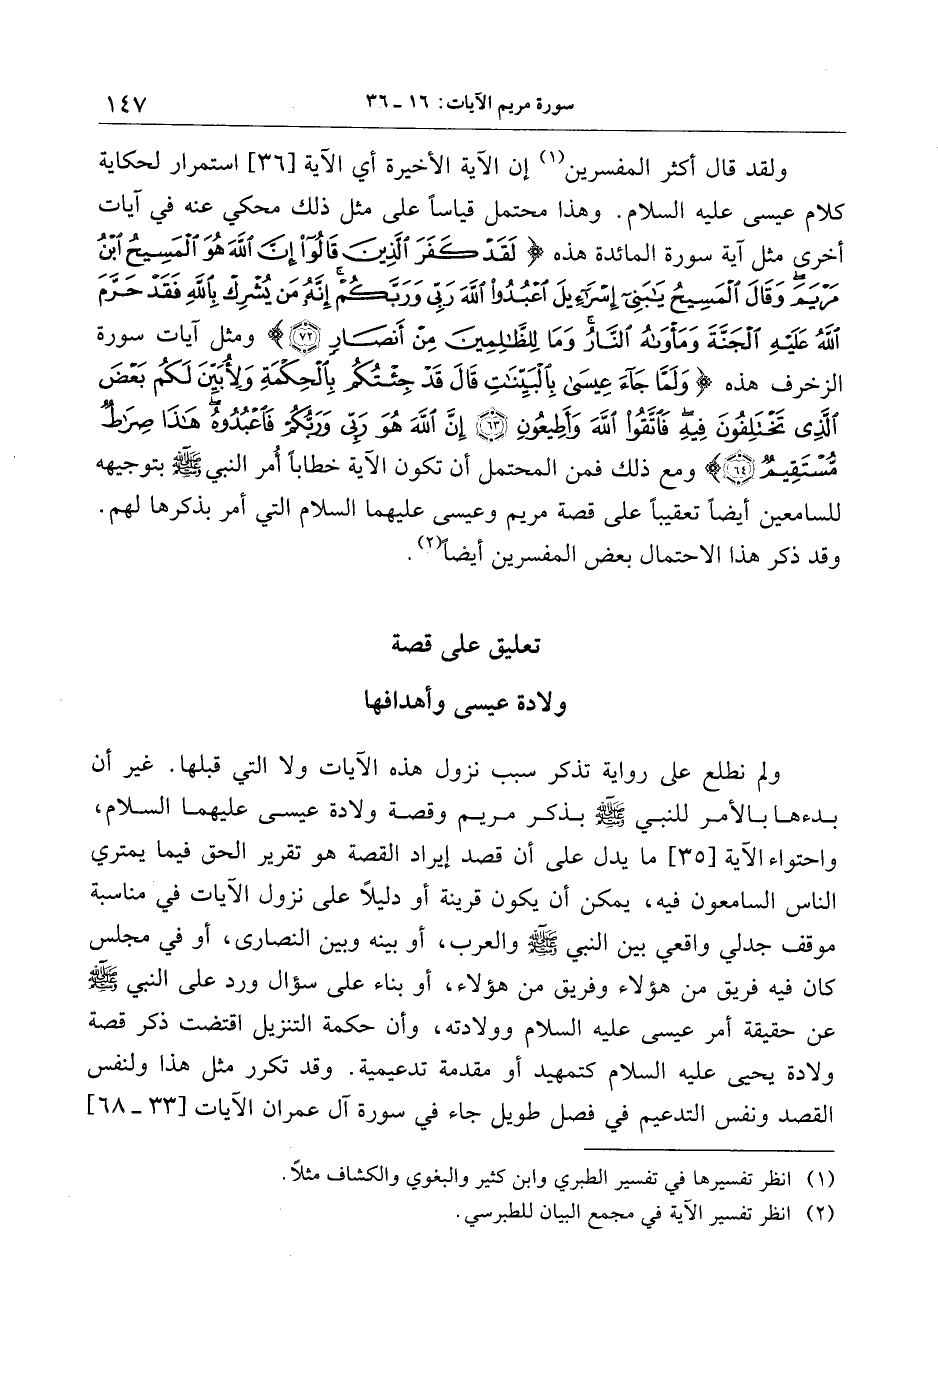 سورة مريم الآيات: ١٦ ـ ٣٦
١٤٧
ولقد قال أكثر المفسرين(١) إن الآية الأخيرة أي الآية [٣٦] استمرار لحكاية
كلام عيسى عليه السلام. وهذا محتمل قياساً على مثل ذلك محكي عنه في آيات
أخرى مثل آية سورة المائدة هذه ﴿لَقَدْ كَفَرَ ٱلَّذِينَ قَالُوٓا۟ إِنَّ ٱللَّهَ هُوَ ٱلْمَسِيحُ ٱبْنُ
مَرْيَمَ ۖ وَقَالَ ٱلْمَسِيحُ يَـٰبَنِىٓ إِسْرَٰٓءِيلَ ٱعْبُدُوا۟ ٱللَّهَ رَبِّى وَرَبَّكُمْ ۖ إِنَّهُۥ مَن يُشْرِكْ بِٱللَّهِ فَقَدْ حَرَّمَ
ٱللَّهُ عَلَيْهِ ٱلْجَنَّةَ وَمَأْوَىٰهُ ٱلنَّارُ ۖ وَمَا لِلظَّـٰلِمِينَ مِنْ أَنصَارٍ ٧٢﴾ ومثل آيات سورة
الزخرف هذه ﴿وَلَمَّا جَآءَ عِيسَىٰ بِٱلْبَيِّنَـٰتِ قَالَ قَدْ جِئْتُكُم بِٱلْحِكْمَةِ وَلِأُبَيِّنَ لَكُم بَعْضَ
ٱلَّذِى تَخْتَلِفُونَ فِيهِ ۖ فَٱتَّقُوا۟ ٱللَّهَ وَأَطِيعُونِ ٦٣ إِنَّ ٱللَّهَ هُوَ رَبِّى وَرَبُّكُمْ فَٱعْبُدُوهُ ۚ هَـٰذَا صِرَٰطٌ
مُّسْتَقِيمٌ ٦٤﴾ ومع ذلك فمن المحتمل أن تكون الآية خطاباً أُمر النبي ﷺ بتوجيهه
للسامعين أيضاً تعقيباً على قصة مريم وعيسى عليهما السلام التي أمر بذكرها لهم.
وقد ذكر هذا الاحتمال بعض المفسرين أيضاً(٢).
تعليق على قصة
ولادة عيسى وأهدافها
ولم نطلع على رواية تذكر سبب نزول هذه الآيات ولا التي قبلها. غير أن
بدءها بالأمر للنبي ﷺ بذكر مريم وقصة ولادة عيسى عليهما السلام،
واحتواء الآية [٣٥] ما يدل على أن قصد إيراد القصة هو تقرير الحق فيما يمتري
الناس السامعون فيه، يمكن أن يكون قرينة أو دليلاً على نزول الآيات في مناسبة
موقف جدلي واقعي بين النبي ﷺ والعرب، أو بينه وبين النصارى، أو في مجلس
كان فيه فريق من هؤلاء وفريق من هؤلاء، أو بناء على سؤال ورد على النبي ﷺ
عن حقيقة أمر عيسى عليه السلام وولادته، وأن حكمة التنزيل اقتضت ذكر قصة
ولادة يحيى عليه السلام كتمهيد أو مقدمة تدعيمية. وقد تكرر مثل هذا ولنفس
القصد ونفس التدعيم في فصل طويل جاء في سورة آل عمران الآيات [٣٣ ـ ٦٨]
(١) انظر تفسيرها في تفسير الطبري وابن كثير والبغوي والكشاف مثلاً.
(٢) انظر تفسير الآية في مجمع البيان للطبرسي.